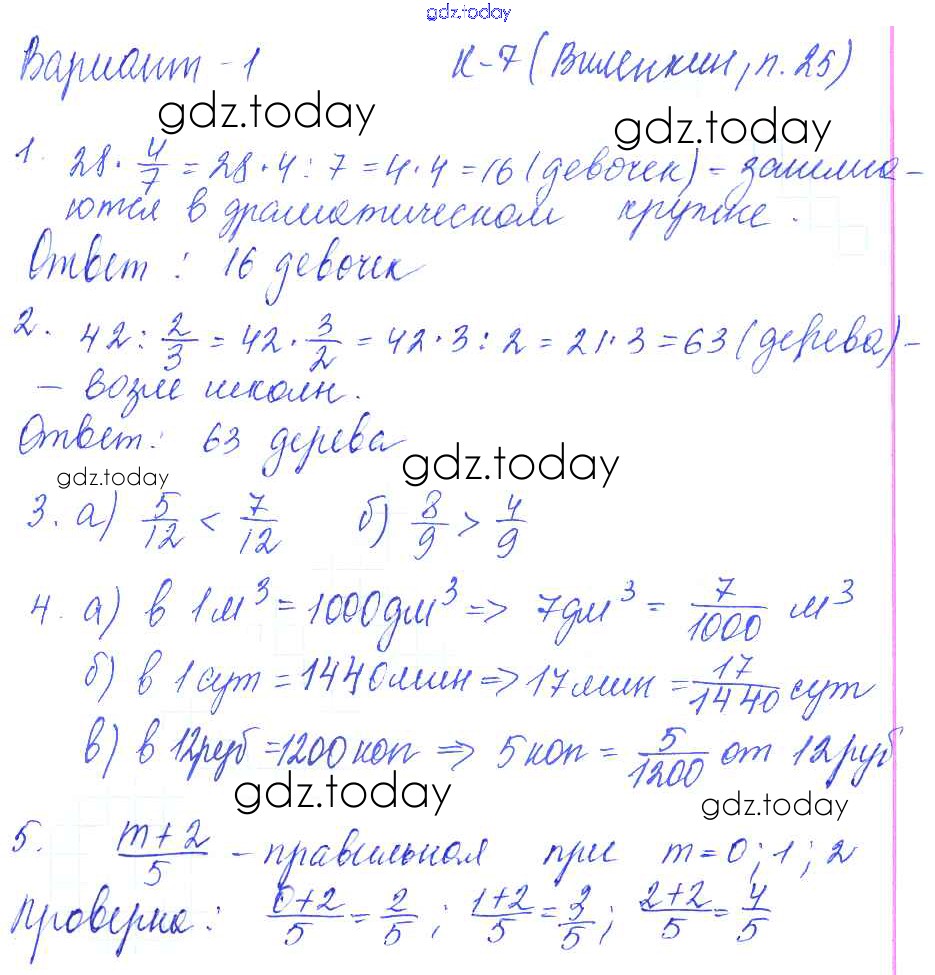 gdz.today
Вариант - 1 К-7 (Виленкин, п. 25)
gdz.today gdz.today
1. 28 · 4/7 = 28 · 4 : 7 = 4 · 4 = 16 (девочек) - занима-
ются в драматическом кружке.
Ответ : 16 девочек
2. 42 : 2/3 = 42 · 3/2 = 42 · 3 : 2 = 21 · 3 = 63 (дерева) -
- возле школы.
Ответ: 63 дерева
gdz.today gdz.today
3. а) 5/12 < 7/12 б) 8/9 > 4/9
4. а) в 1 м³ = 1000 дм³ => 7 дм³ = 7/1000 м³
б) в 1 сут = 1440 мин => 17 мин = 17/1440 сут
в) в 12 руб = 1200 коп => 5 коп = 5/1200 от 12 руб
gdz.today gdz.today
5. m+2/5 - правильная при m = 0 ; 1 ; 2
Проверка : 0+2/5 = 2/5 ; 1+2/5 = 3/5 ; 2+2/5 = 4/5